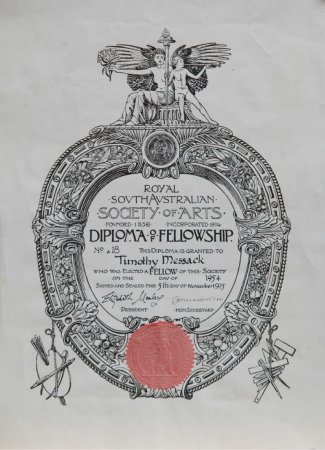 ROYAL
SOVTH AVSTRALIAN
SOCIETY OF ARTS.
FOUNDED 1856 INCORPORATED 1894
DIPLOMA OF FELLOWSHIP.
No A 18 THIS DIPLOMA IS GRANTED TO
Timothy Messack
WHO WAS ELECTED A FELLOW OF THIS SOCIETY
ON THE DAY OF 1954
SIGNED AND SEALED THIS 5th DAY OF November 1975
PRESIDENT HON. SECRETARY